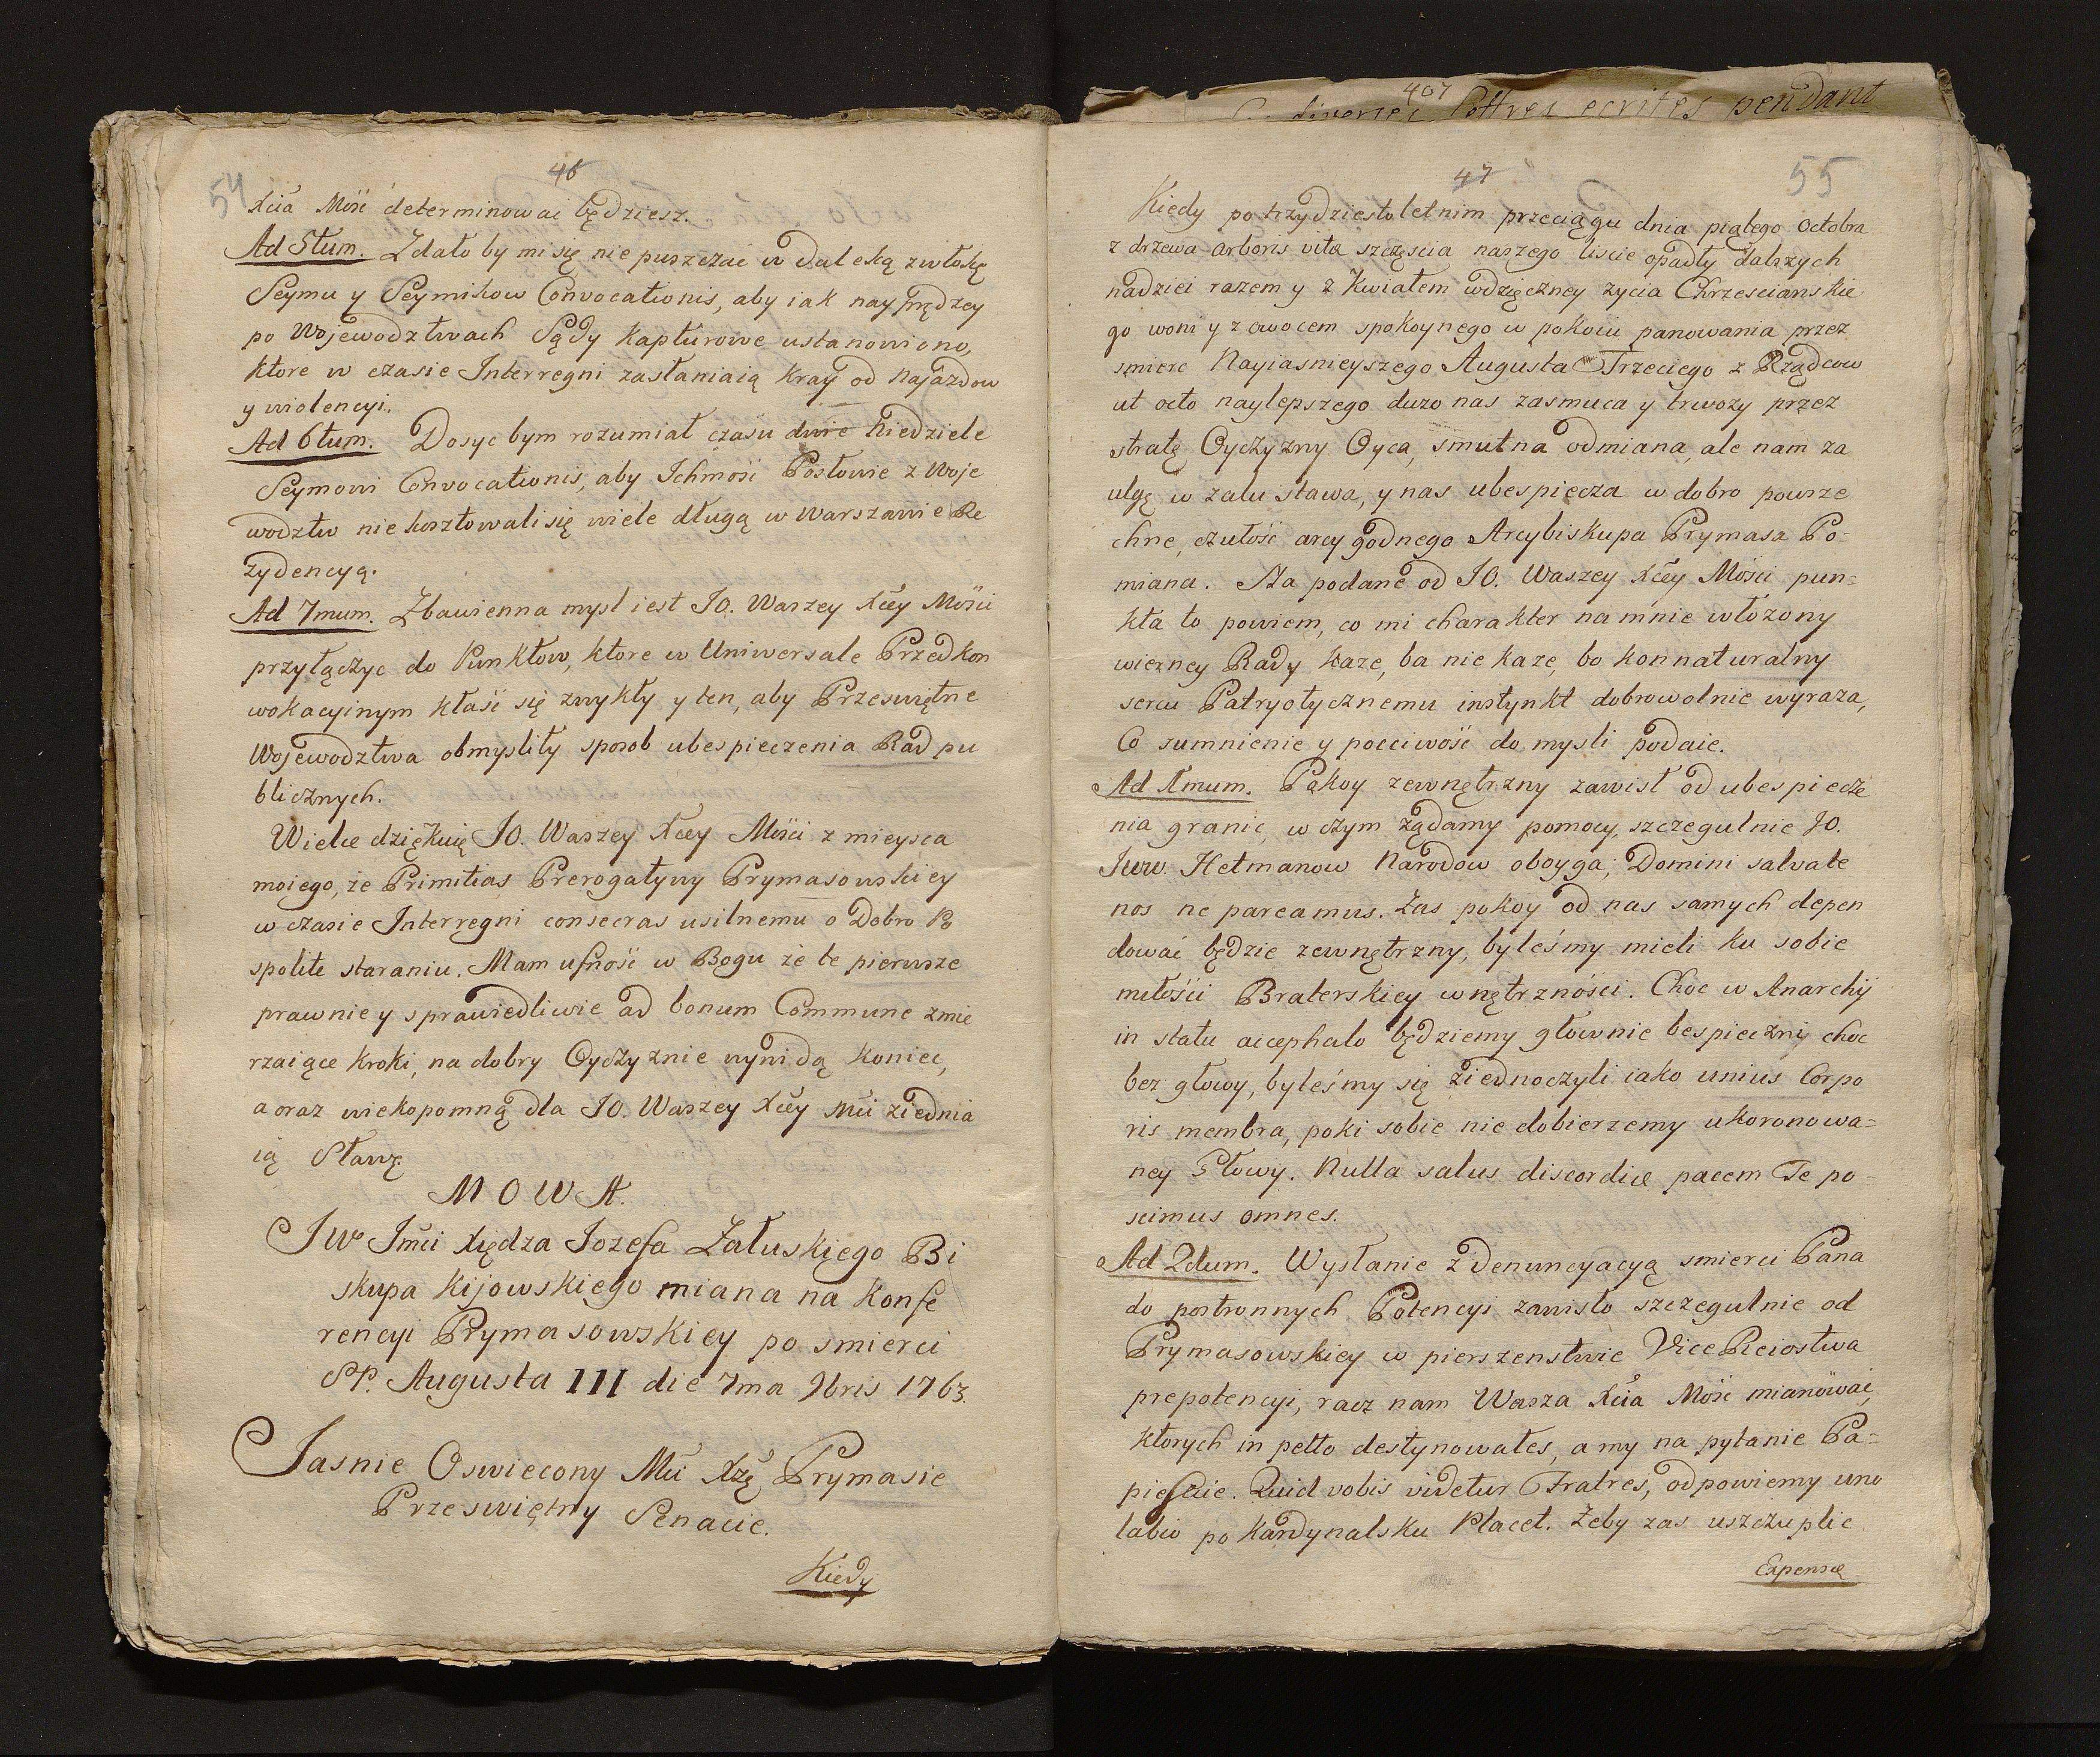 46
54
Xcia Mość determinować będziesz.
Ad 5tum. Zdało by mi się nie puszczać w daleką zwłokę
Seymu y Seymikow Convocationis, aby iak nayprędzey
po Wojewodztwach Sądy Kapturowe ustanowiono,
ktore w czasie Interregni zasłaniaią Kray od Najazdow
y violencyi.
Ad 6tum. Dosyc bym rozumiał czasu dwie Niedziele
Seymowi Convocationis, aby Ichmość Posłowie z Woje
wodztw nie kosztowali się wiele długą w Warszawie Re
zydencyą.
Ad 7mum. Zbawienna mysl iest JO. Waszey Xcey Mości
przyłączyc do Punktow, ktore w Uniwersale Przedkon
wokacyinym kłaść się zwykły y ten, aby Przeswiętne
Wojewodztwa obmysliły sposob ubespieczenia Rad pu
blicznych.
Wielce dziękuię JO. Waszey Xcey Mości z mieysca
moiego, że Primitias Prerogatywy Prymasowskiey
w czasie Interregni consecras usilnemu o Dobro R
spolite staraniu. Mam ufność w Bogu że te pierwsze
prawnie y sprawiedliwie ad bonum Commune zmie
rzaiące kroki, na dobry Oyczyznie wynidą koniec,
a oraz wiekopomną dla JO. Waszey Xcey Mci ziednia
ią Sławę.
MOWA.
JW Jmci Xiędza Jozefa Załuskiego Bi
skupa Kijowskiego miana na Konfe
rencyi Prymasowskiey po smierci
SP. Augusta III die 7ma 9bris 1763.
Jasnie Oswiecony Mci Xżę Prymasie
Przeswiętny Senacie.
Kiedy
407
diverses Lettres ecrites pendant
47
55
Kiedy po trzydziestoletnim przeciągu dnia piątego Octobra
z drzewa arboris vitæ szczęscia naszego liscie opadły dalszych
nadziei razem y z Kwiatem wdzięczney zycia Chrzescianskie
go woni y z owocem spokoynego w pokoiu panowania przez
smierc Nayiasnieyszego Augusta Trzeciego z Rządcow
ut octo naylepszego duzo nas zasmuca y trwozy przez
stratę Oyczyzny Oyca, smutna odmiana, ale nam za
ulgę w zalu stawa, y nas ubespiecza w dobro powsze
chne, czułość arcygodnego Arcybiskupa Prymasa Po-
miana. Na podane od JO. Waszey Xcey Mości pun-
kta to powiem, co mi charakter na mnie włożony
wierney Rady każe, ba nie każe, bo konnaturalny
sercu Patryotycznemu instynkt dobrowolnie wyraża,
Co sumnienie y poćciwość do mysli podaie.
Ad 1mum. Pokoy zewnętrzny zawisł od ubespiecze
nia granic, w czym żądamy pomocy, szczegulnie JO.
Jww. Hetmanow Narodow oboyga; Domini salvate
nos ne pereamus. Zas pokoy od nas samych depen
dować będzie zewnętrzny, byleśmy mieli ku sobie
miłości Braterskiey wnętrzności. Choc w Anarchij
in statu aicephalo będziemy głownie bespieczni choc
bez głowy, byleśmy się ziednoczyli iako unius Corpo
ris membra, poki sobie nie dobierzemy ukoronowa-
ney Głowy. Nulla salus discordiæ pacem Te po-
scimus omnes.
Ad 2dum. Wysłanie z denuncyacyą smierci Pana
do postronnych Potencyi zawisło szczegulnie od
Prymasowskiey w pierszenstwie ViceReiostwa
prepotencyi, racz nam Wasza Xcia Mość mianować,
ktorych in petto destynowałes, a my na pytanie Pa-
pieskie. Quid vobis videtur Fratres, odpowiemy uno
labio po Kardynalsku Placet. Żeby zas uszczuplic
Expensę